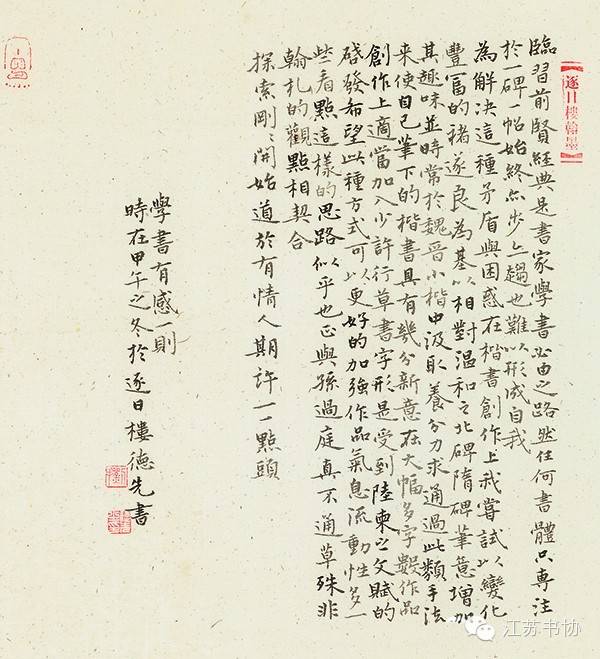 逐日樓翰墨
臨習前賢經典是書家學書必由之路然任何書體只專注
於一碑一帖始終亦步亦趨也難以形成自我
為解決這種矛盾與困惑在楷書創作上我嘗試以變化
豐富的褚遂良為基以相對溫和之北碑隋碑筆意增加
其趣味並時常於魏晉小楷中汲取養分力求通過此類手法
來使自己筆下的楷書具有幾分新意在大幅多字數作品
創作上適當加入少許行草書字形是受到陸柬之文賦的
啓發希望此種方式可以更好的加強作品氣息流動性多一
些看點這樣的思路似乎也正與孫過庭真不通草殊非
翰札的觀點相契合
探索剛剛開始道於有情人期許一一點頭
學書有感一則
時在甲午之冬於逐日樓德先書
江苏书协